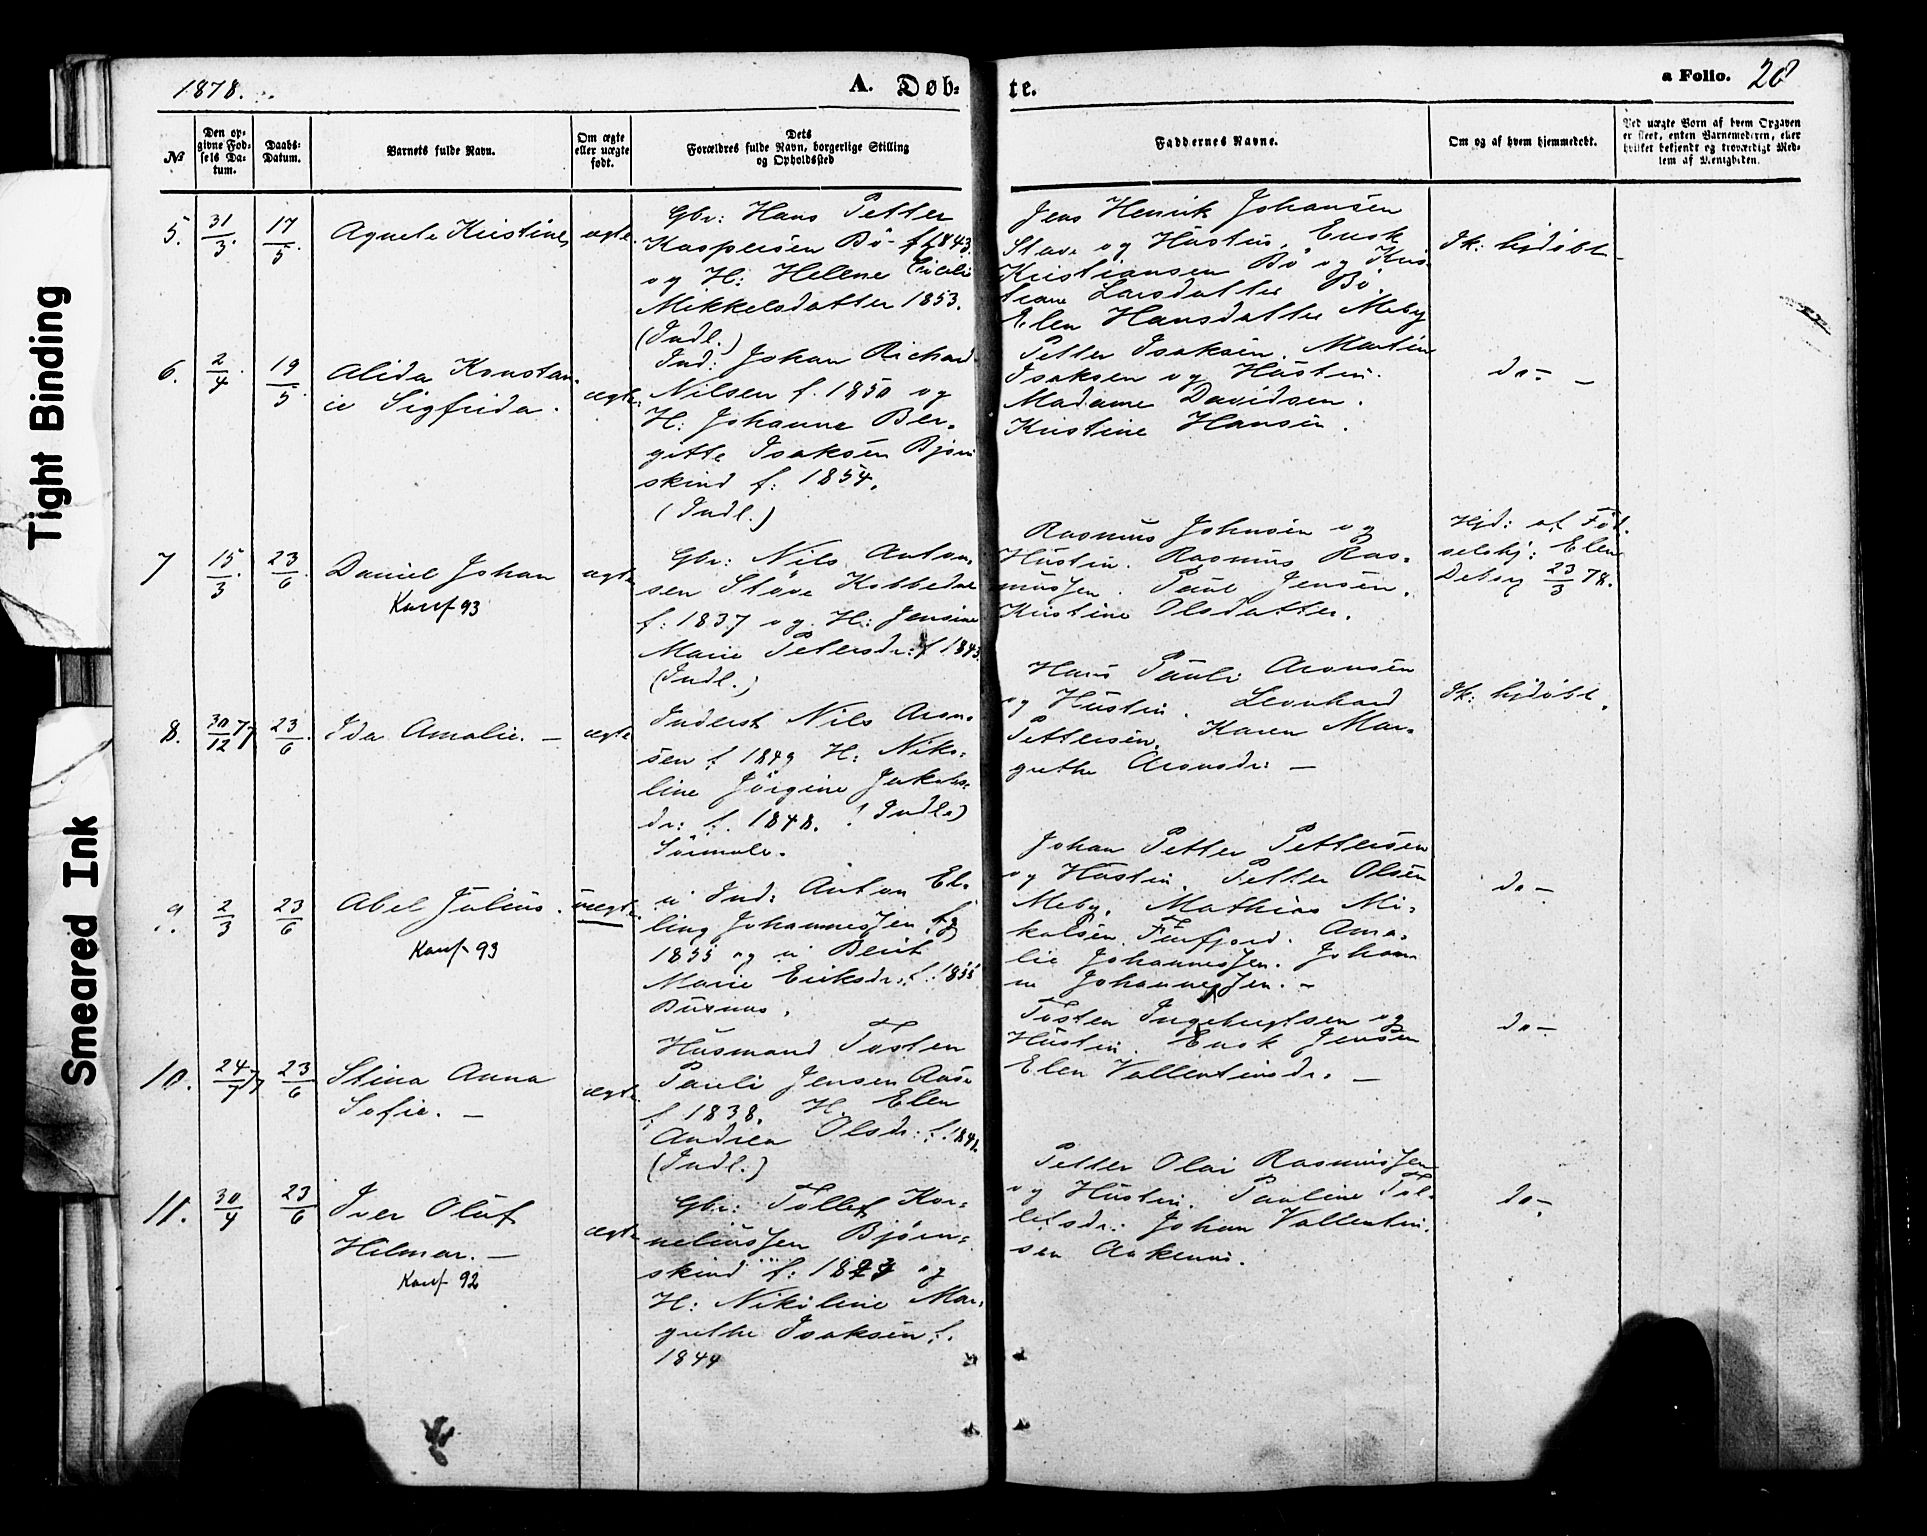 1878.
A. Døb-
te.
a Folio. 28
№
Den op-
givne Fød-
sels Da-
tum.
Daabs-
Datum.
Barnets fulde Navn.
Om ægte
eller uægte
født.
Dets
Forældres fulde Navn, borgerlige Stilling
og Opholdssted
Faddernes Navne.
Om og af hvem hjemmedøbt.
Ved uægte Børn af hvem Opgaven
er skeet, enten Barnemoderen, eller
hvilket bekjendt og troværdigt Med-
lem af Menigheden.
5. 31/3. 17/5 Agnete Kristine ægte.
Gbr: Hans Petter
Kaspersen Bö f. 1843
og H: Helene
Mikkelsdatter 1853.
(Indl.)
Jens Henrik Johansen
Stave og Hustru, Erik
Kristiansen Bö og Kris-
tiane Larsdatter Bö.
Elen Hansdatter Meby
Ik: hjdøbt
6. 2/4. 19/5. Alida Konstan-
ce Sigfrida. ægte.
Ind: Johan Richard
Nilsen f. 1850 og
H: Johanne Ber-
gitte Isaksen Bjørn
skind f: 1854.
(Indl.)
Petter Isaksen. Martin
Isaksen og Hustru.
Madame Davidsen.
Kristine Hansen.
do. –
7 15/3. 23/6. Daniel Johan ægte
Konf. 93
Gbr: Nils Anton
sen Stave Kobbedal
f: 1837 og H: Jensine
Marie Petersdr: f. 1843
(Indl.)
Rasmus Johnsen og
Hustru. Rasmus Ras-
mussen. Paul Jensen.
Kristine Olsdatter.
Hjd: af Fød-
selshj: Elen
Deberg 23/3 78.
8. 30/12 77 23/6. Ida Amalie. – ægte
Inderst Nils Aron-
sen f. 1849 H: Niko-
line Jörgine Jakobs-
dr: f. 1848. (Indl.)
Sörmole.
Hans Pauli Aronsen
og Hustru. Leonhard
Pettersen. Karen Mar-
grethe Aronsdr: –
Ik: hjdøbt.
9. 2/3 23/6 Abel Julius. uægte.
Konf. 93
u Ind: Anton El-
ling Johannessen f.
1855 og u Berit
Marie Eriksdr: f. 1855
Buxnes.
Johan Petter Pettersen
og Hustru. Petter Olsen
Meby. Mathias Mi-
kalsen Finfjord. Ama-
lie Johannessen. Johan
ne Johannessen. –
do –
10. 24/7 77 23/6 Stina Anna
Sofie. – ægte.
Husmand Tosten
Pauli Jensen Aase
f. 1838. H. Elen
Andrea Olsdr: f. 1841.
(Indl.)
Tosten Ingebrigtsen og
Hustru. Erik Jensen
Elen Vallentinsdr. –
do –
11. 30/4 23/6 Iver Oluf
Hilmar. – ægte
Konf. 92
Gbr: Tollef Kor-
neliussen Bjørn-
skind f: 1823 og
H: Nikoline Mar-
grethe Isaksen f.
1844
Petter Olai Rasmussen
og Hustru. Pauline Tol-
lefsdr: Johan Vallentin-
sen
do.
Tight Binding
Smeared Ink